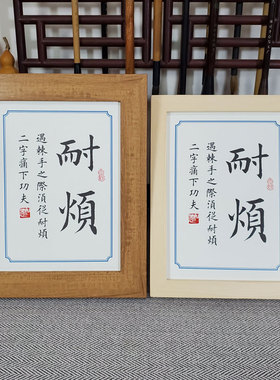 耐煩
遇棘手之際須從耐煩
二字痛下功夫
耐煩
遇棘手之際須從耐煩
二字痛下功夫